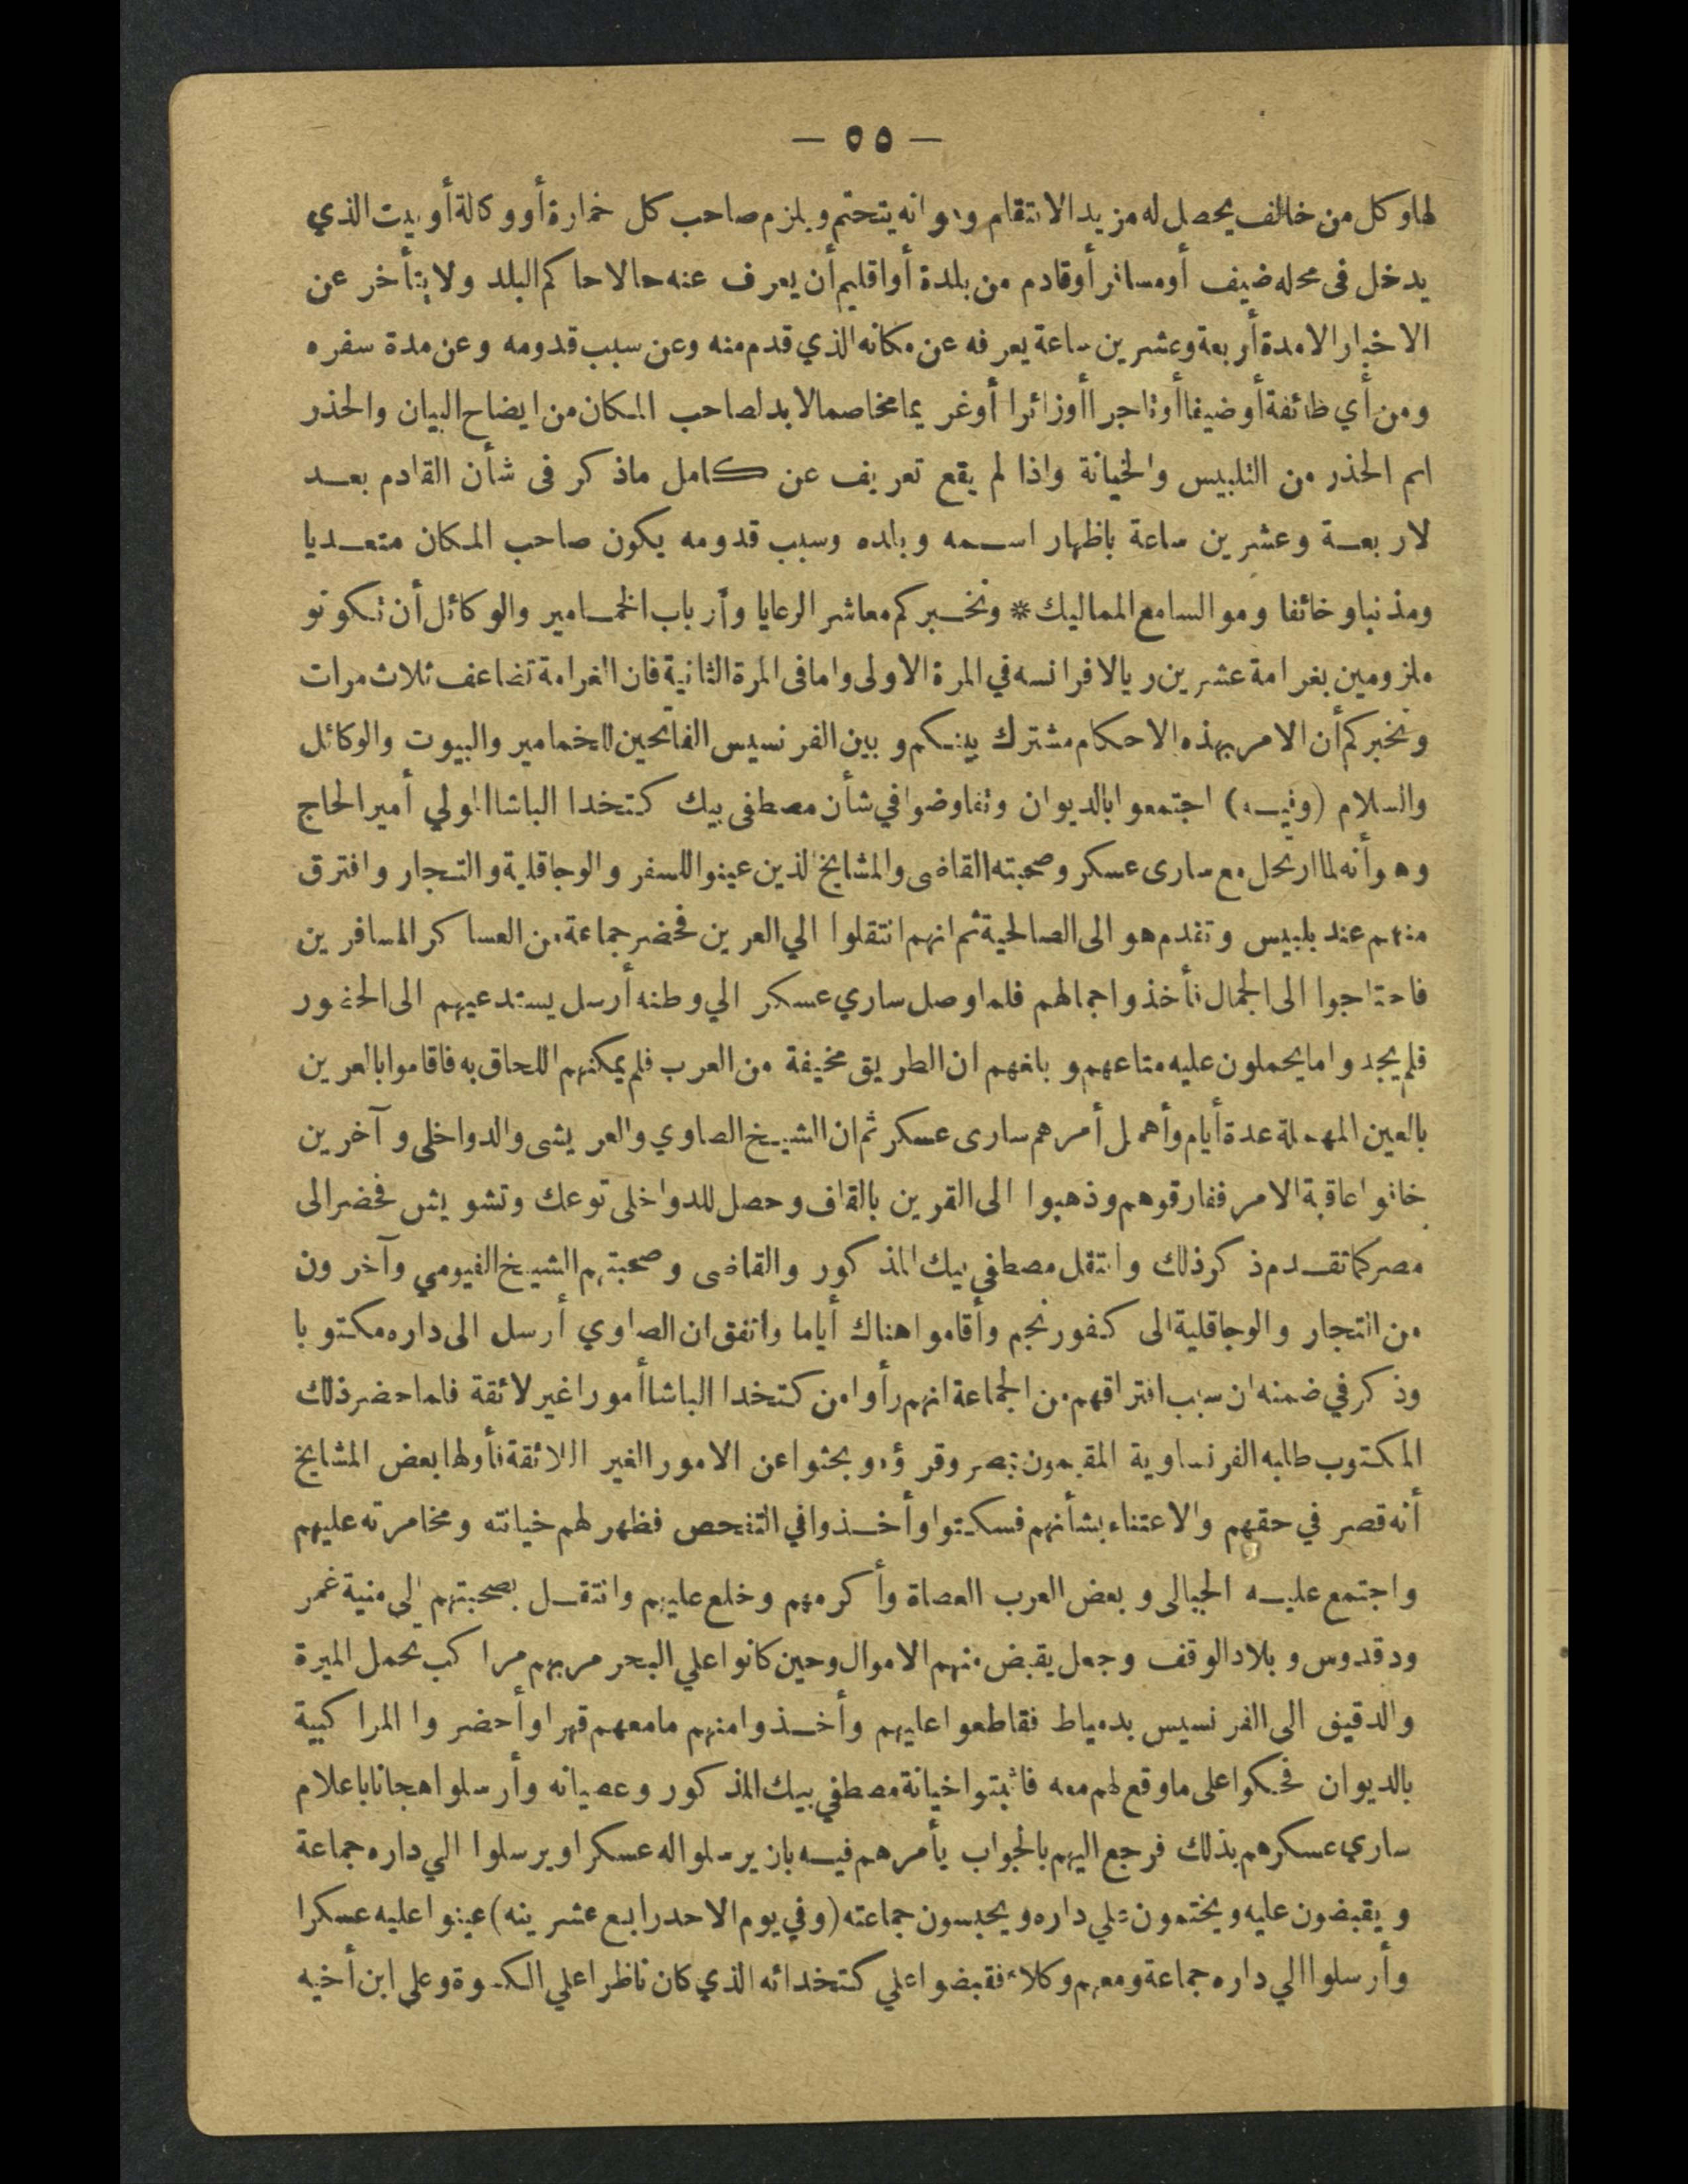 — ٥٥ —
لها وكل من خالف يحصل له مزيد الانتقام وهو انه يتحتم ويلزم صاحب كل خمارة أو وكالة أو بيت الذي
يدخل فى محله ضيف أو مسافر أو قادم من بلدة أو اقليم أن يعرف عنه حالا حاكم البلد ولا يتأخر عن
الاخبار الا مدة أربعة وعشرين ساعة يعرفه عن مكانه الذي قدم منه وعن سبب قدومه وعن مدة سفره
ومن أي طائفة أو ضيفا أو تاجرا أو زائرا أو غريما مخاصما لابد لصاحب المكان من ايضاح البيان والحذر
اسم الحذر من التلبيس والخيانة واذا لم يقع تعريف عن كامل ماذكر فى شأن القادم بعد
لاربعة وعشرين ساعة باظهار اسمه وبلده وسبب قدومه يكون صاحب المكان متعديا
ومذنبا وخائفا وموالسا مع المماليك * ونخبركم معاشر الرعايا وأرباب الخمامير والوكائل أن تكونو
ملزومين بغرامة عشرين ريالا فرانسه في المرة الاولى واما فى المرة الثانية فان الغرامة تضاعف ثلاث مرات
ونخبركم أن الامر بهذه الاحكام مشترك بينكم وبين الفرنسيس الفاتحين للخمامير والبيوت والوكائل
والسلام (وفيه) اجتمعوا بالديوان وتفاوضوا في شأن مصطفى بيك كتخدا الباشا المولي أمير الحاج
وهو أنه لما ارتحل مع سارى عسكر وصحبته القاضى والمشايخ الذين عينوا للسفر والوجاقلية والتجار وافترق
منهم عند بلبيس وتقدم هو الى الصالحية ثم انهم انتقلوا الي العرين فحضر جماعة من العساكر المسافرين
فاحتاجوا الى الجمال فأخذوا جمالهم فلما وصل ساري عسكر الي وطنه أرسل يستدعيهم الى الحضور
فلم يجدوا ما يحملون عليه متاعهم وبلغهم ان الطريق مخيفة من العرب فلم يمكنهم اللحاق به فاقاموا بالعرين
بالعين المهملة عدة أيام وأهمل أمرهم سارى عسكر ثم ان الشيخ الصاوي والعريشى والدواخلى وآخرين
خافوا عاقبة الامر ففارقوهم وذهبوا الى القرين بالقاف وحصل للدواخلى توعك وتشويش فحضر الى
مصر كما تقدم ذكر ذلك وانتقل مصطفي بيك المذكور والقاضى وصحبتهم الشيخ الفيومي وآخرون
من التجار والوجاقلية الى كفور نجم وأقاموا هناك أياما واتفق ان الصاوي أرسل الى داره مكتوبا
وذكر في ضمنه ان سبب افتراقهم من الجماعة انهم رأوا من كتخدا الباشا أمورا غير لائقة فلما حضر ذلك
المكتوب طلبه الفرنساوية المقيمون بمصر وقرؤه وبحثوا عن الامور الغير اللائقة فأولها بعض المشايخ
أنه قصر في حقهم والاعتناء بشأنهم فسكتوا وأخذوا في التفحص فظهر لهم خيانته ومخامرته عليهم
واجتمع عليه الجبالى وبعض العرب العصاة وأكرمهم وخلع عليهم وانتقل بصحبتهم الي منية غمر
ودقدوس وبلاد الوقف وجعل يقبض منهم الاموال وحين كانوا علي البحر مر بهم مراكب تحمل الميرة
والدقيق الى الفرنسيس بدمياط فقاطعوا عليهم وأخذوا منهم مامعهم قهرا وأحضروا المراكبية
بالديوان فحكوا على ماوقع لهم معه فاثبتوا خيانة مصطفي بيك المذكور وعصيانه وأرسلوا هجانا باعلام
ساري عسكرهم بذلك فرجع اليهم بالجواب يأمرهم فيه بان يرسلوا له عسكرا ويرسلوا الي داره جماعة
ويقبضون عليه ويختمون علي داره ويحبسون جماعته (وفي يوم الاحد رابع عشرينه) عينوا عليه عسكرا
وأرسلوا الي داره جماعة ومعهم وكلاء فقبضوا علي كتخدائه الذي كان ناظرا علي الكسوة وعلى ابن أخيه